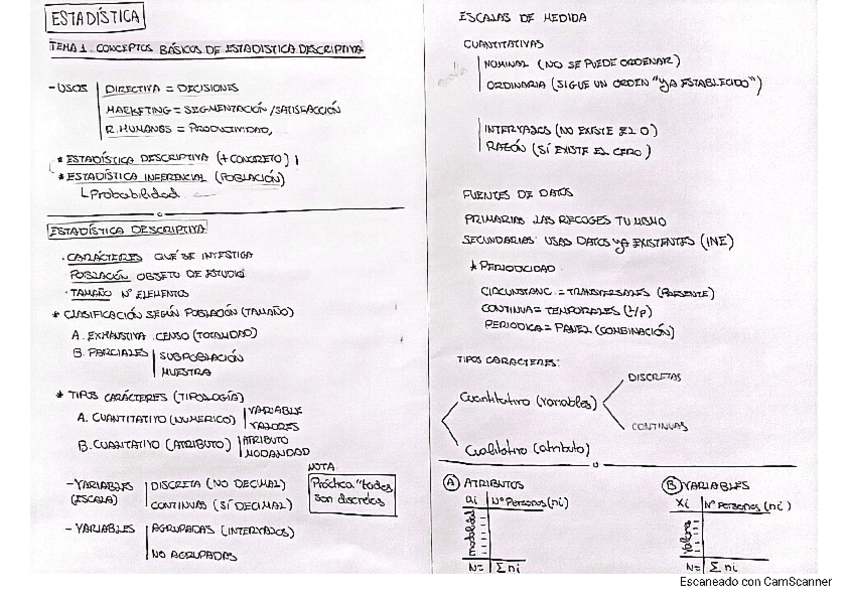 ESTADÍSTICA
TEMA 1. CONCEPTOS BÁSICOS DE ESTADISTICA DESCRIPTIVA
- USOS
DIRECTIVA = DECISIONES
MARKETING = SEGMENTACIÓN/SATISFACCIÓN
R. HUMANOS = PRODUCTIVIDAD,
* ESTADÍSTICA DESCRIPTIVA (+ CONCRETO)
* ESTADÍSTICA INFERENCIAL (POBLACIÓN)
Probabilidad
ESTADÍSTICA DESCRIPTIVA
· CARÁCTERES QUÉ SE INVESTIGA
POBLACIÓN OBJETO DE ESTUDIO
· TAMAÑO Nº ELEMENTOS
* CLASIFICACIÓN SEGÚN POBLACIÓN (TAMAÑO)
A. EXHAUSTIVA. CENSO (TOTALIDAD)
B. PARCIALES
SUBPOBLACIÓN
MUESTRA
* TIPOS CARÁCTERES (TIPOLOGÍA)
A. CUANTITATIVO (NUMERICO)
VARIABLE
VALORES
B. CUANTITATIVO (ATRIBUTO)
ATRIBUTO
MODALIDAD
- VARIABLES (ESCALA)
DISCRETA (NO DECIMAL)
CONTINUAS (SÍ DECIMAL)
NOTA
Práctica "todas son discretas
- VARIABLES
AGRUPADAS (INTERVALOS)
NO AGRUPADAS
ESCALAS DE MEDIDA
CUANTITATIVAS
NOMINAL (NO SE PUEDE ORDENAR)
ORDINARIA (SIGUE UN ORDEN "YA ESTABLECIDO")
INTERVALOS (NO EXISTE EL 0)
RAZÓN (SÍ EXISTE EL CERO)
FUENTES DE DATOS
PRIMARIAS LAS RECOGES TU MISMO
SECUNDARIAS: USAS DATOS YA EXISTENTES (INE)
* PERIODICIDAD
CIRCUNSTANC. = TRANSVERSALES (PRESENTE)
CONTINUA = TEMPORALES (t/p)
PERIODICA = PANEL (COMBINACIÓN)
TIPOS CARACTERES:
Cuantitativo (variables)
DISCRETAS
CONTINUAS
Cualitativo (atributo)
A ATRIBUTOS
ai Nº Personas (ni)
modalidad
N= Σ ni
B VARIABLES
Xi Nº Personas (ni)
Valores
N= Σ ni
Escaneado con CamScanner